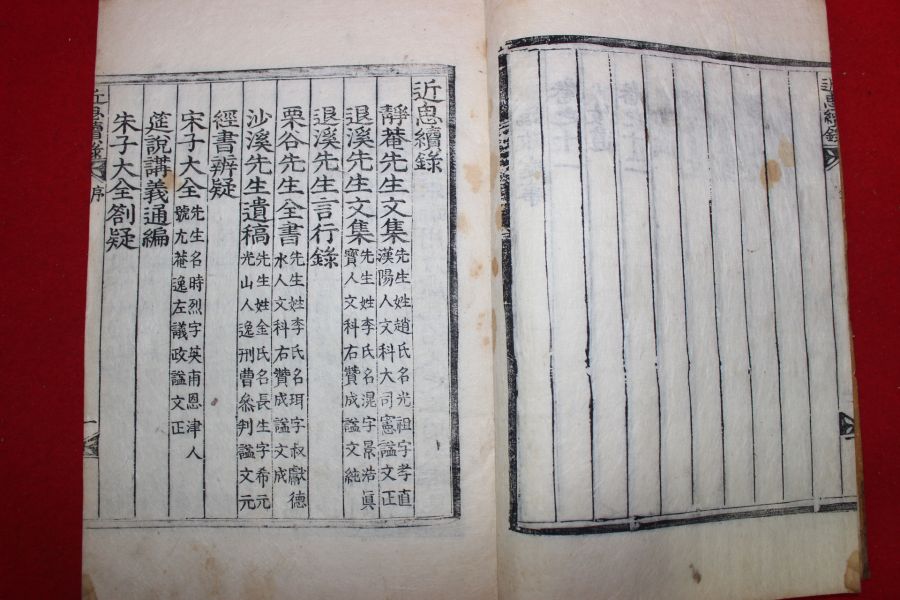 近思續錄
近思續錄
靜菴先生文集
先生姓趙氏名光祖字孝直
漢陽人文科大司憲謚文正
退溪先生文集
先生姓李氏名滉字景浩眞
寶人文科右贊成謚文純
退溪先生言行錄
栗谷先生全書
先生姓李氏名珥字叔獻德
水人文科右贊成謚文成
沙溪先生遺稿
先生姓金氏名長生字希元
光山人逸刑曹叅判謚文元
經書辨疑
宋子大全
先生名時烈字英甫恩津人
號尤菴逸左議政謚文正
筵說講義通編
朱子大全劄疑
近思續錄 序 一